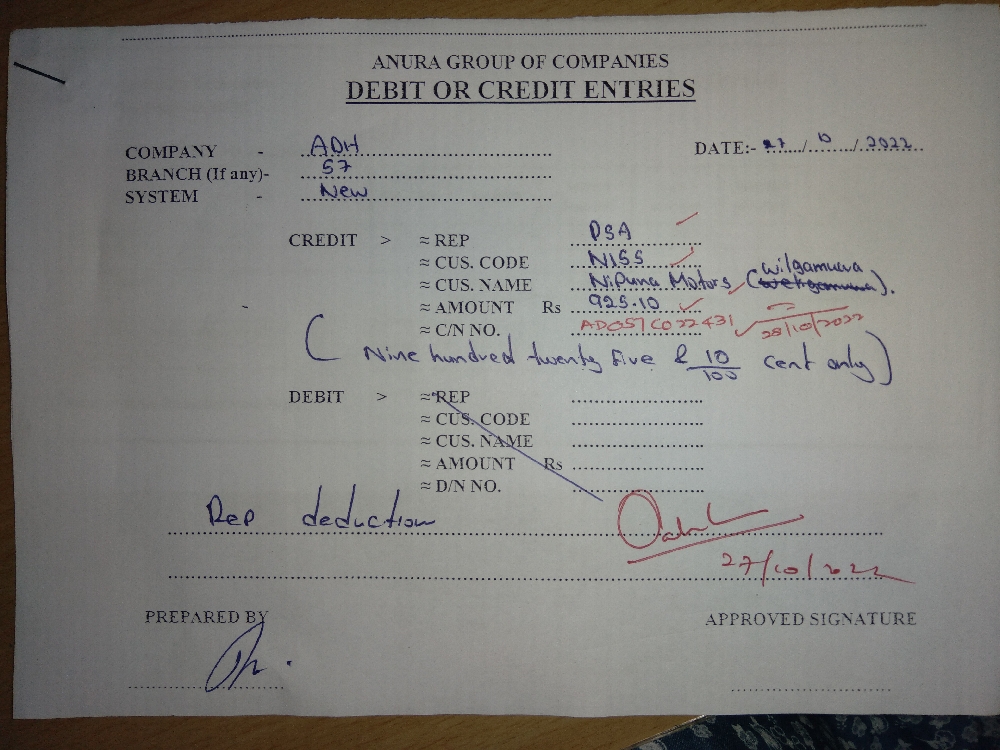 ANURA GROUP OF COMPANIES
DEBIT OR CREDIT ENTRIES
COMPANY - ADH DATE:- 27/10/2022
BRANCH (If any)- 57
SYSTEM - New
CREDIT > ≈ REP DSA
≈ CUS. CODE N155
≈ CUS. NAME Nipuna Motors (Wilgamuwa).
≈ AMOUNT Rs 925.10
≈ C/N NO. AD057C022431 28/10/2022
(Nine hundred twenty five & 10/100 cent only)
DEBIT > ≈ REP
≈ CUS. CODE
≈ CUS. NAME
≈ AMOUNT Rs
≈ D/N NO.
Rep deduction
27/10/2022
PREPARED BY APPROVED SIGNATURE